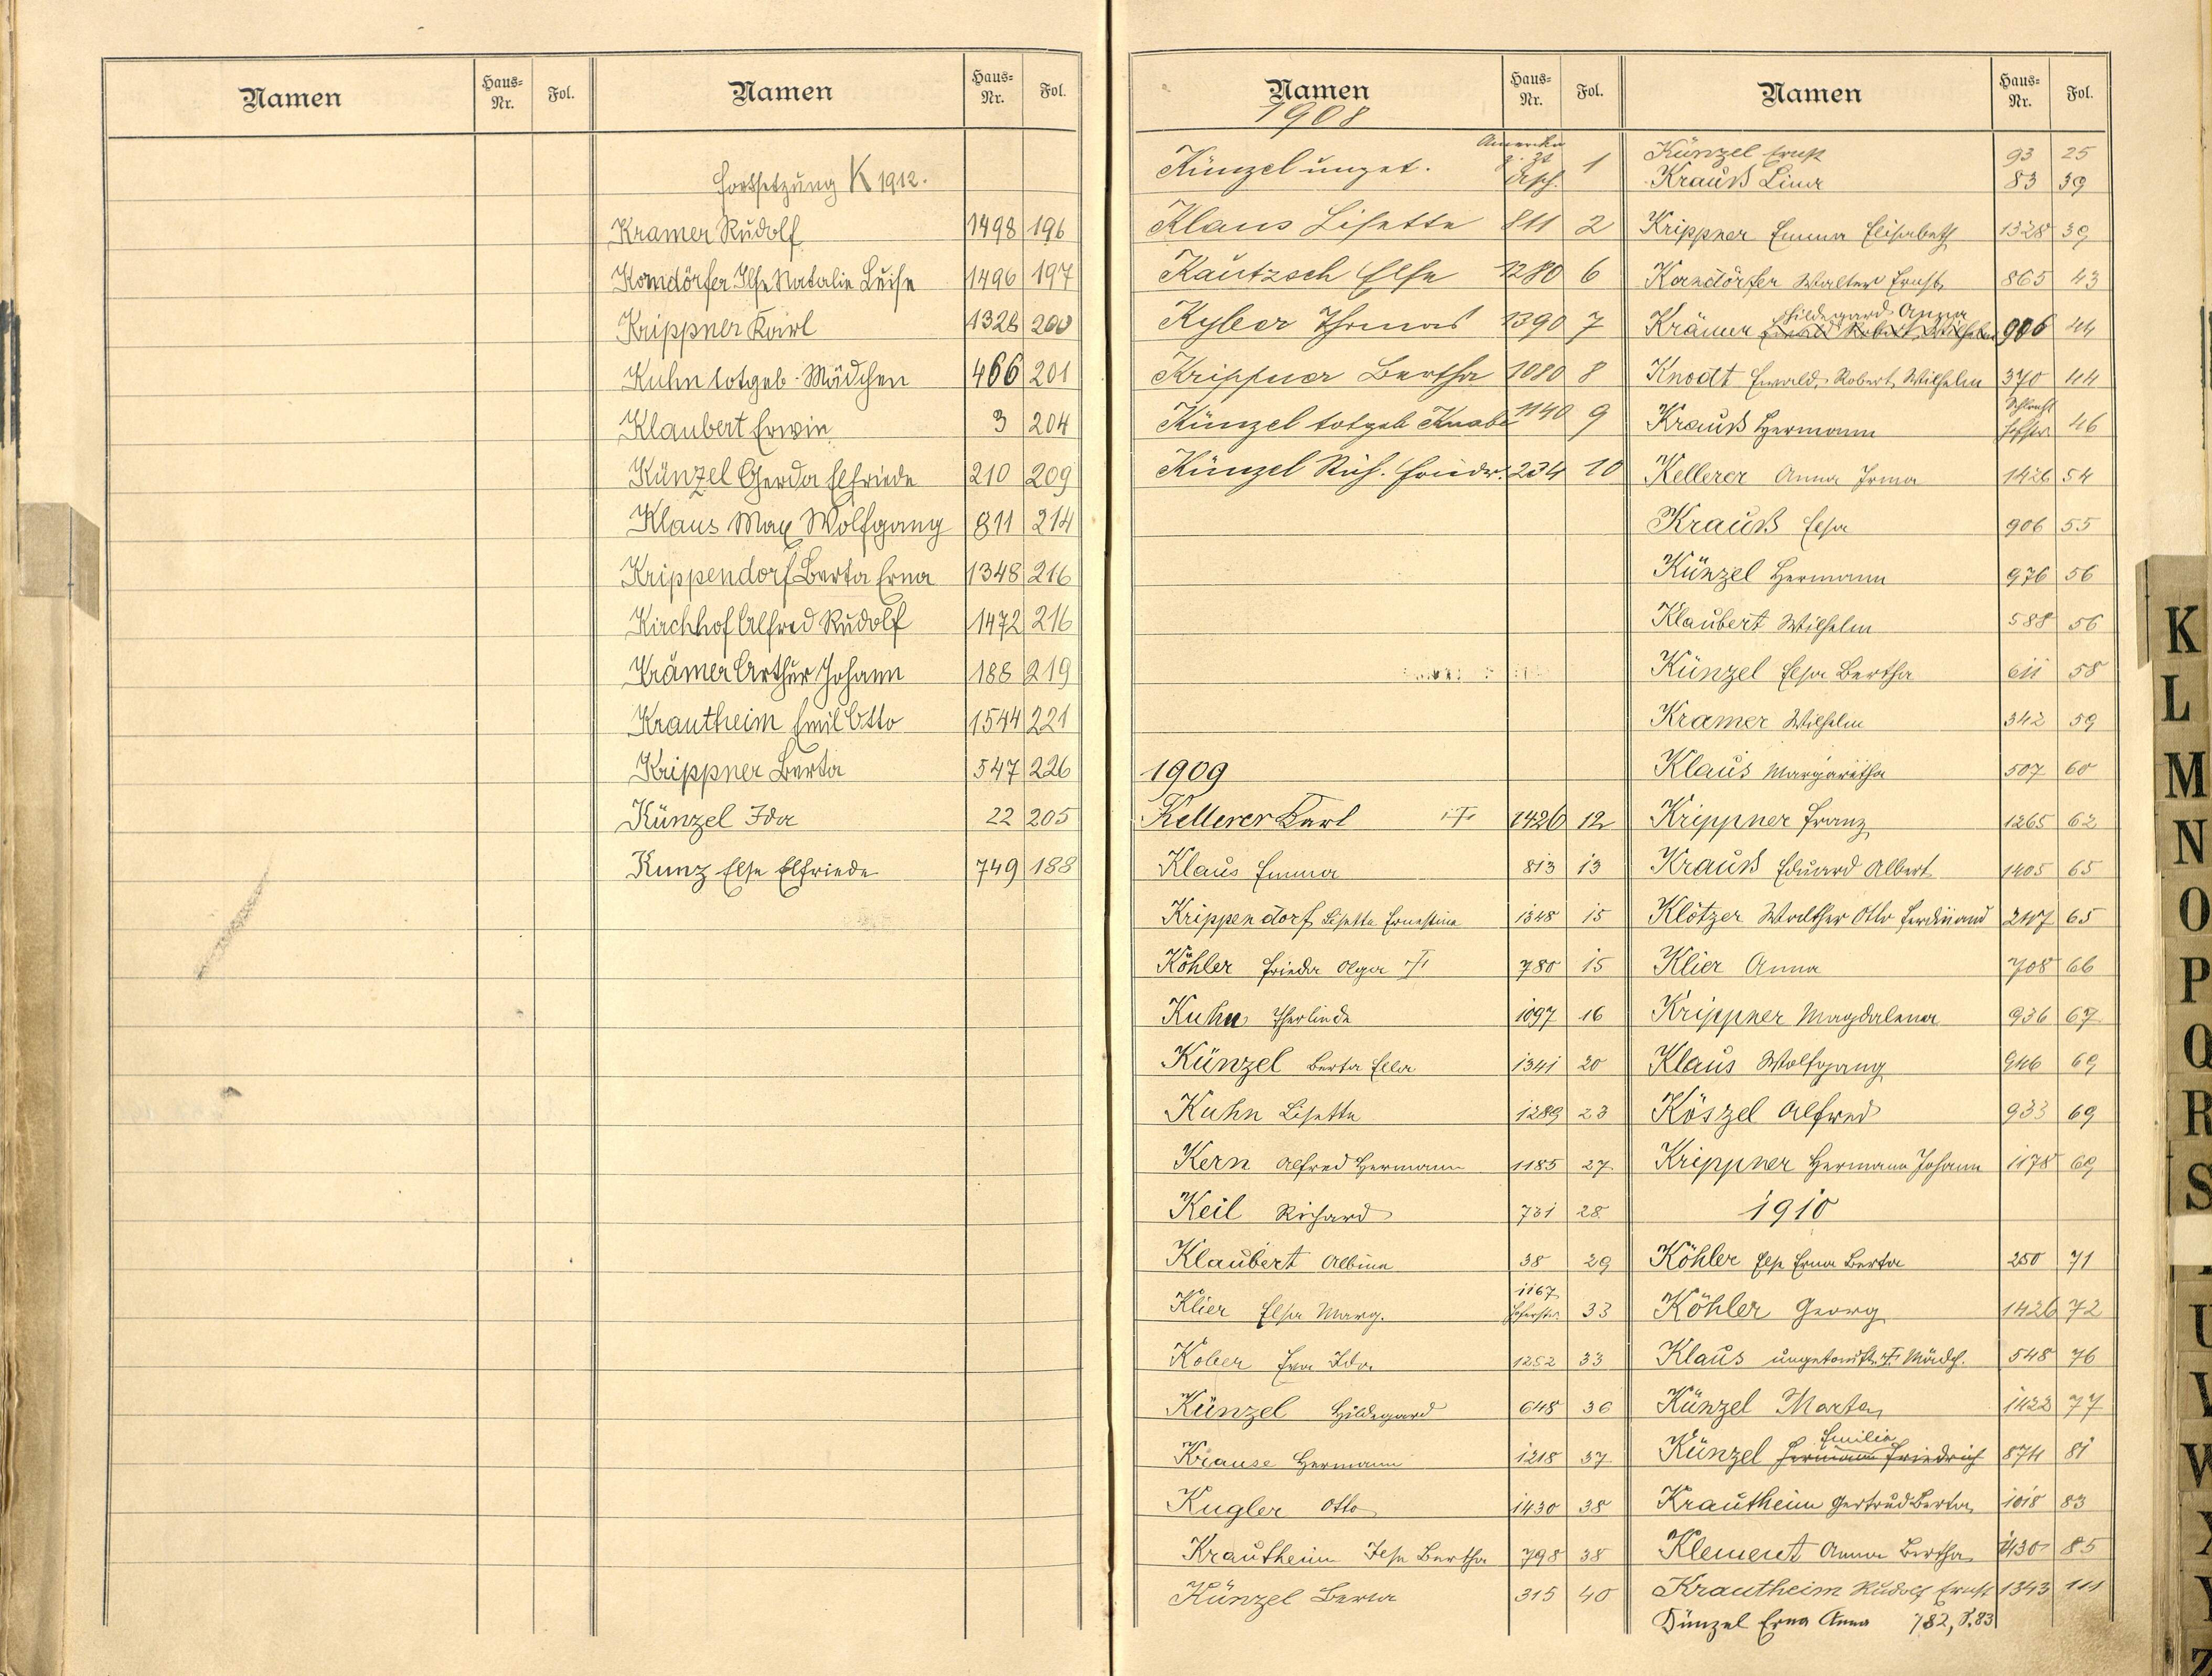 Namen Haus-Nr. Fol. Namen Haus-Nr. Fol.
Fortsetzung K 1912.
Kramer Rudolf 1498 196
Korndörfer Ilse Natalie Luise 1496 197
Krippner Karl 1328 200
Kuhn totgeb. Mädchen 466 201
Klaubert Erwin 3 204
Künzel Gerda Elfriede 210 209
Klaus Max Wolfgang 811 214
Krippendorf Berta Erna 1348 216
Kirchhof Alfred Rudolf 1472 216
Krämer Arthur Johann 188 219
Krautheim Emil Otto 1544 221
Krippner Berta 547 226
Künzel Ida 22 205
Kunz Else Elfriede 749 188
Namen Haus-Nr. Fol.
1908
Künzel unget. Amerika z. Zt. 1
Klaus Lisette 811 2
Kautzsch Else 1280 6
Kyber Thomas 1390 7
Krippner Bertha 1080 8
Künzel totgeb Knabe 1140 9
Künzel Rich. Friedr. 234 10
1909
Kellerer Karl 1426 12
Klaus Emma 813 13
Krippendorf Lisetta Ernestine 1348 15
Köhler Frieda Olga 780 15
Kuhn Therlinde 1097 16
Künzel Berta Ella 1341 20
Kuhn Lisette 1289 23
Kern Alfred Hermann 1185 27
Keil Richard 731 28
Klaubert Albine 38 29
Klier Elsa Marg. 1167 Hoferstr. 33
Kober Eva Ida 1252 33
Künzel Hildegard 648 36
Krause Hermann 1218 37
Kugler Otto 1430 38
Krautheim Ilse Bertha 798 38
Künzel Berta 315 40
Namen Haus-Nr. Fol.
Künzel Ernst 93 25
Krauß Lina 83 39
Krippner Emma Elisabeth 1328 39
Korndörfer Walter Ernst 865 43
Krämer Hildegard Anna Ewald Robert Wilhelm 906 44
Knodt Ewald Robert Wilhelm 370 44
Krauß Hermann Schlacht hofstr. 46
Kellerer Anna Irma 1426 54
Krauß Elsa 906 55
Künzel Hermann 976 56
Klaubert Wilhelm 588 56
Künzel Elsa Bertha 611 58
Kramer Wilhelm 342 59
Klaus Margaretha 507 60
Krippner Franz 1265 62
Krauß Eduard Albert 1405 65
Klötzer Walther Otto Ferdinand 65
Klier Anna 708 66
Krippner Magdalena 936 67
Klaus Wolfgang 946 69
Köszel Alfred 933 69
Krippner Hermann Johann 1178 69
1910
Köhler Else Erna Berta 250 71
Köhler Georg 1426 72
Klaus ungetauft. Mädch. 548 76
Künzel Marta 1422 77
Künzel Emilie Hermann Friedrich 874 81
Krautheim Gertrud Berta 1018 83
Klement Anna Bertha 1430 85
Krautheim Rudolf Ernst 1343 111
Künzel Erna Anna 782, S. 83
K
L
M
N
O
P
Q
R
S
U
V
W
X
Y
Z